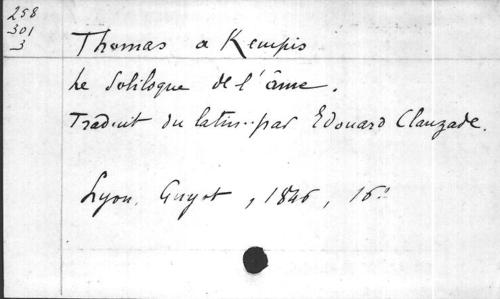 258
301
3
Thomas a Kempis
Le Soliloque de l'âme.
Traduit du latin par Edouard Clauzade.
Lyon, Guyot, 1846, 16°